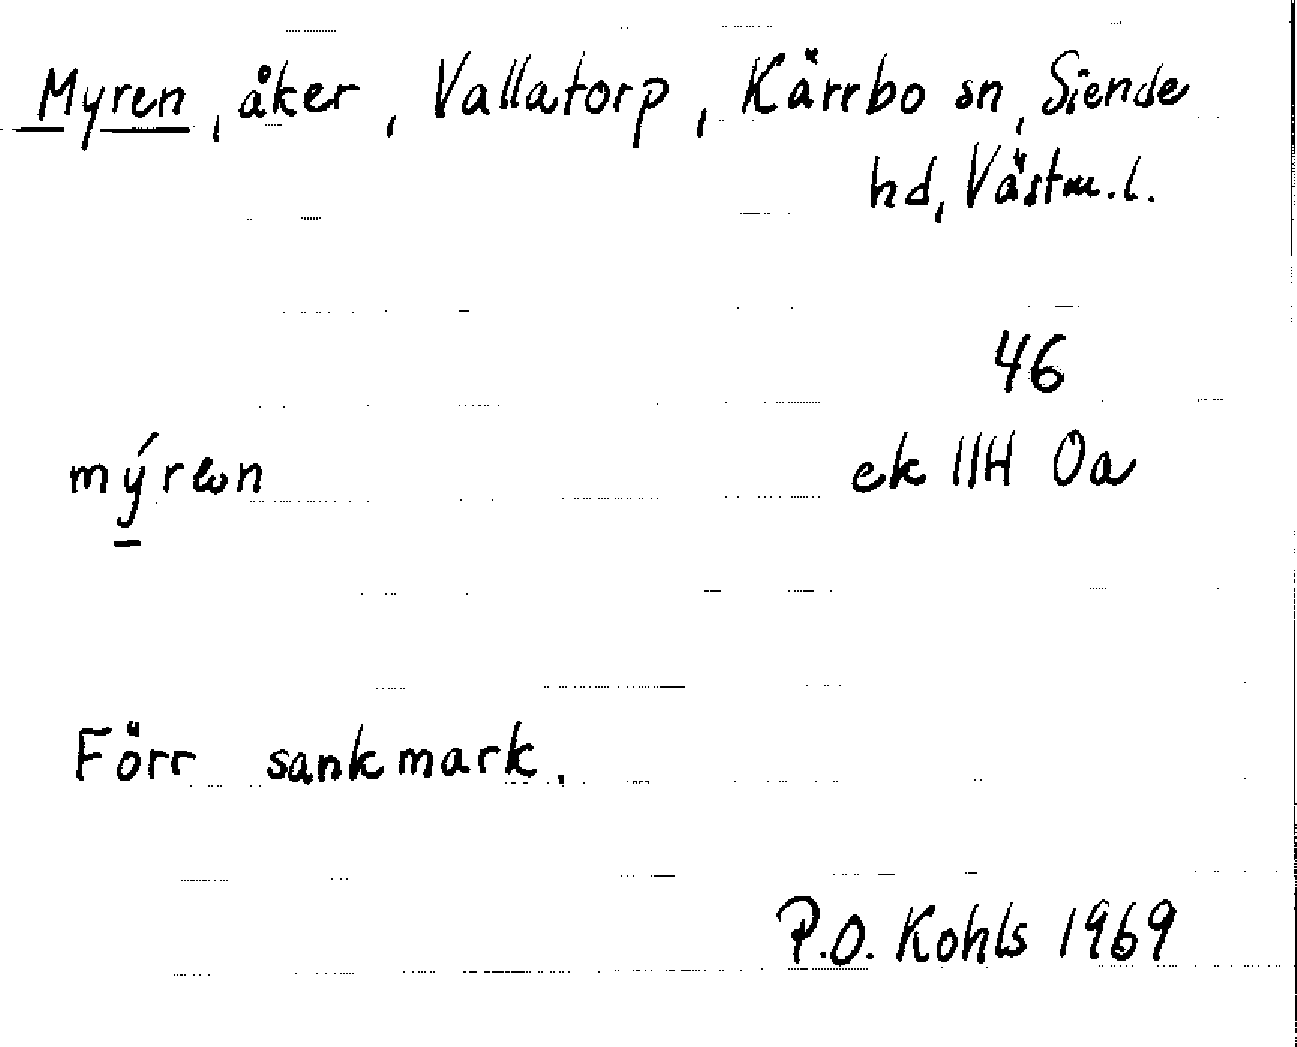 Myren, åker, Vallatorp, Kärrbo sn, Siende
hd, Västm.l.
46
mýrən ek 11H 0a
Förr sankmark.
P.O. Kohls 1969